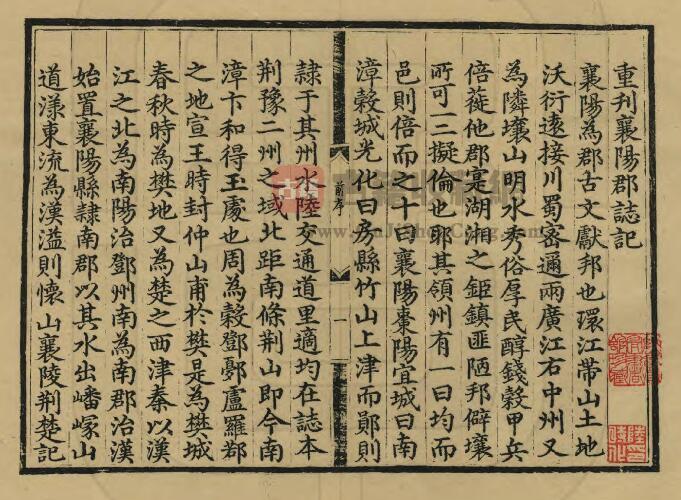 重刋襄陽郡誌記
襄陽為郡古文獻邦也環江帶山土地
沃衍遠接川蜀宻邇兩廣江右中州又
為隣壤山明水秀俗厚民醇錢糓甲兵
倍蓰他郡寔湖湘之鉅鎮匪陋邦僻壤
所可一二擬倫也耶其領州有一曰均而
邑則倍而之十曰襄陽棗陽宜城曰南
漳糓城光化曰房縣竹山上津而鄖則
前序
一
隷于其州水陸交通道里適均在誌本
荆豫二州之域北距南條荆山即今南
漳卞和得玉處也周為糓鄧鄾盧羅鄀
之地宣王時封仲山甫於樊是為樊城
春秋時為樊地又為楚之西津秦以漢
江之北為南陽治鄧州南為南郡治漢
始置襄陽縣隷南郡以其水出嶓嶂山
道漾東流為漢溢則懷山襄陵荆楚記